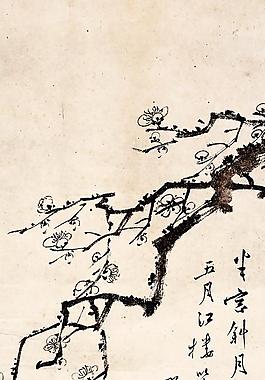 半窗斜月
五月江樓